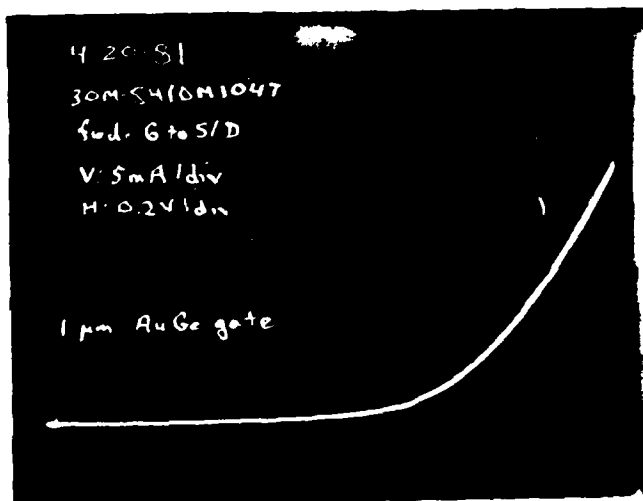 4 20-81
30M-541/DM1047
fwd. G to S/D
V: 5mA/div
H: 0.2V/div
1 μm AuGe gate